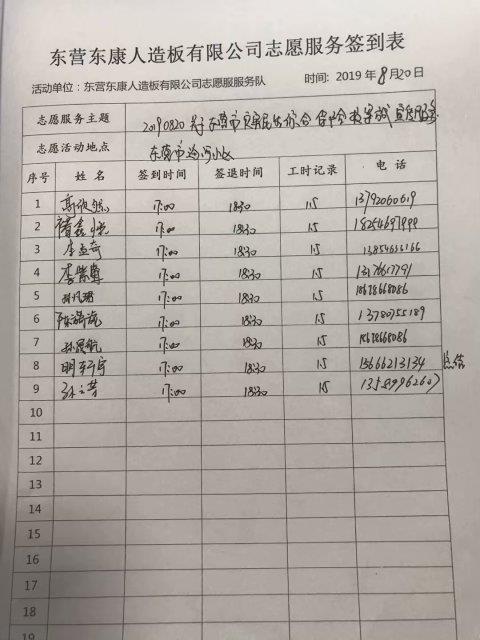 东营东康人造板有限公司志愿服务签到表
活动单位：东营东康人造板有限公司志愿服服务队 时间：2019年8月20日
志愿服务主题 20190820关于东营市
志愿活动地点 东营市
序号 姓名 签到时间 签退时间 工时记录 电话
1 17:00 18:30 1.5 13792060619
2 17:00 18:30 1.5 18254691999
3 李孟奇 17:00 18:30 1.5 13854656166
4 17:00 18:30 1.5 13176617791
5 17:00 18:30 1.5 15678668086
6 17:00 18:30 1.5 13780755189
7 17:00 18:30 1.5 15678668086
8 17:00 18:30 1.5 15666213134 总结
9 17:00 18:30 1.5 13589962607
10
11
12
13
14
15
16
17
18
19